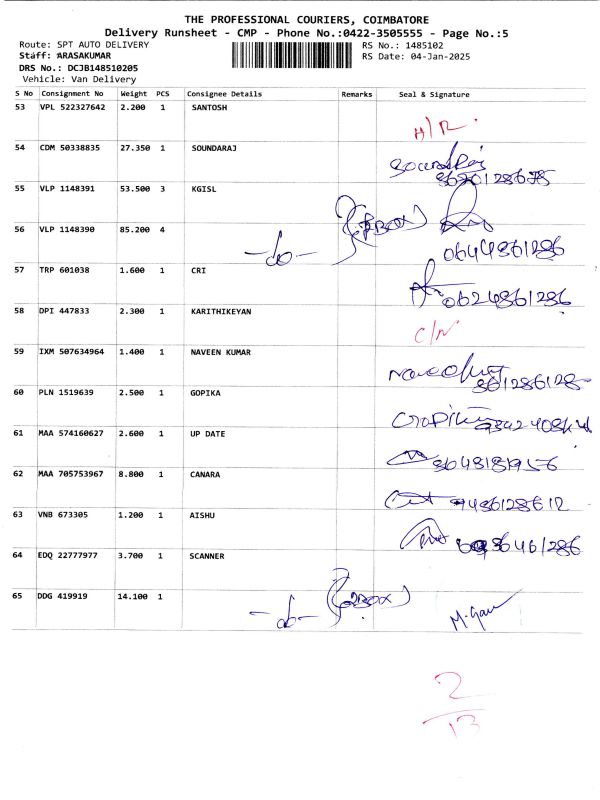 THE PROFESSIONAL COURIERS, COIMBATORE
Delivery Runsheet - CMP - Phone No.:0422-3505555 - Page No.:5
Route: SPT AUTO DELIVERY
RS No.: 1485102
Staff: ARASAKUMAR
RS Date: 04-Jan-2025
DRS No.: DCJB148510205
Vehicle: Van Delivery
S No Consignment No Weight PCS Consignee Details Remarks Seal & Signature
53 VPL 522327642 2.200 1 SANTOSH
54 CDM 50338835 27.350 1 SOUNDARAJ
55 VLP 1148391 53.500 3 KGISL
56 VLP 1148390 85.200 4
-do-
0644861286
57 TRP 601038 1.600 1 CRI
0624861286
58 DPI 447833 2.300 1 KARITHIKEYAN
C/N
59 IXM 507634964 1.400 1 NAVEEN KUMAR
60 PLN 1519639 2.500 1 GOPIKA
61 MAA 574160627 2.600 1 UP DATE
62 MAA 705753967 8.800 1 CANARA
63 VNB 673305 1.200 1 AISHU
64 EDQ 22777977 3.700 1 SCANNER
65 DDG 419919 14.100 1
-do-
2
13